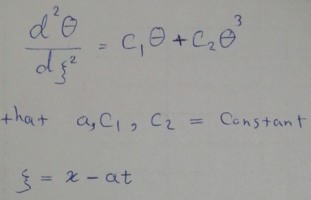 d²θ/dξ² = C₁θ + C₂θ³
that a, C₁, C₂ = Constant
ξ = x - at